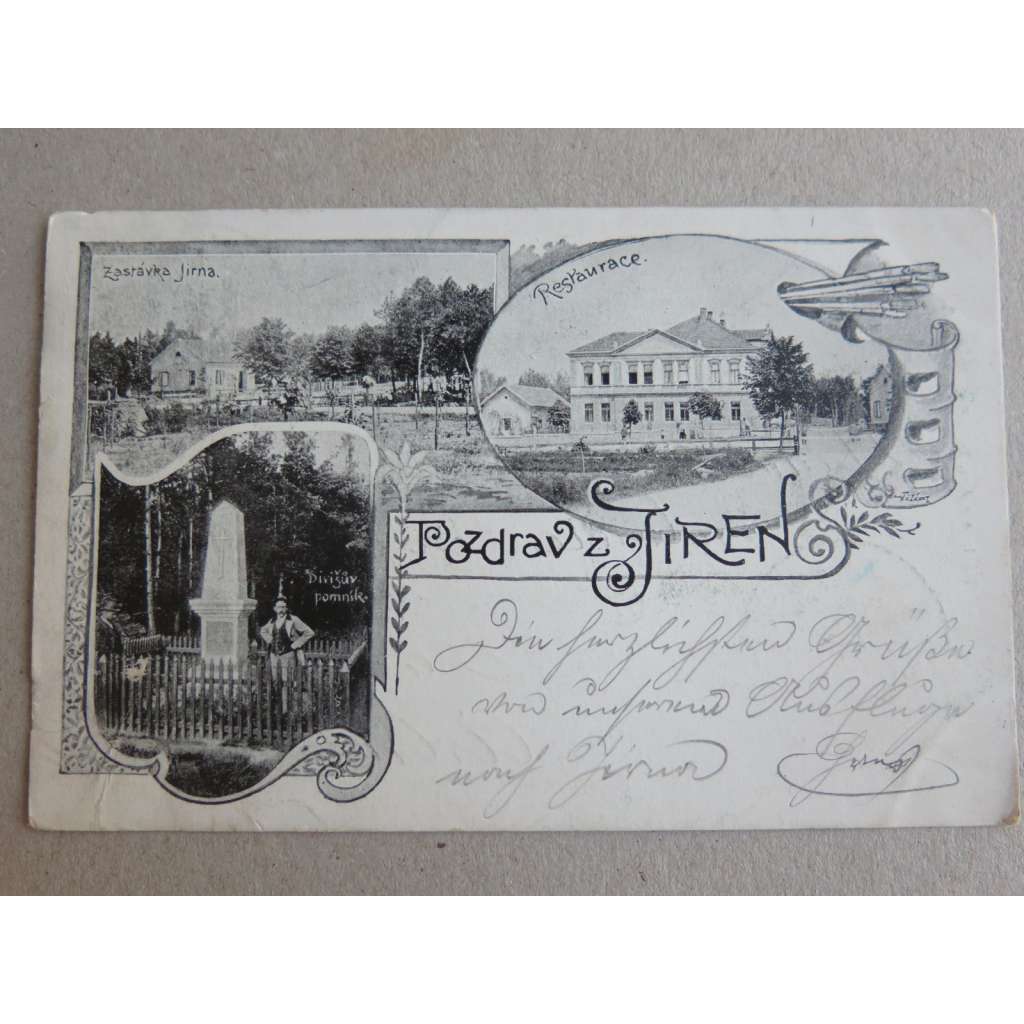 Zastávka Jirna.
Restaurace.
Divišův
pomník.
Pozdrav z JIREN
Die herzlichsten Grüße
von unserem Ausfluge
nach Jirna